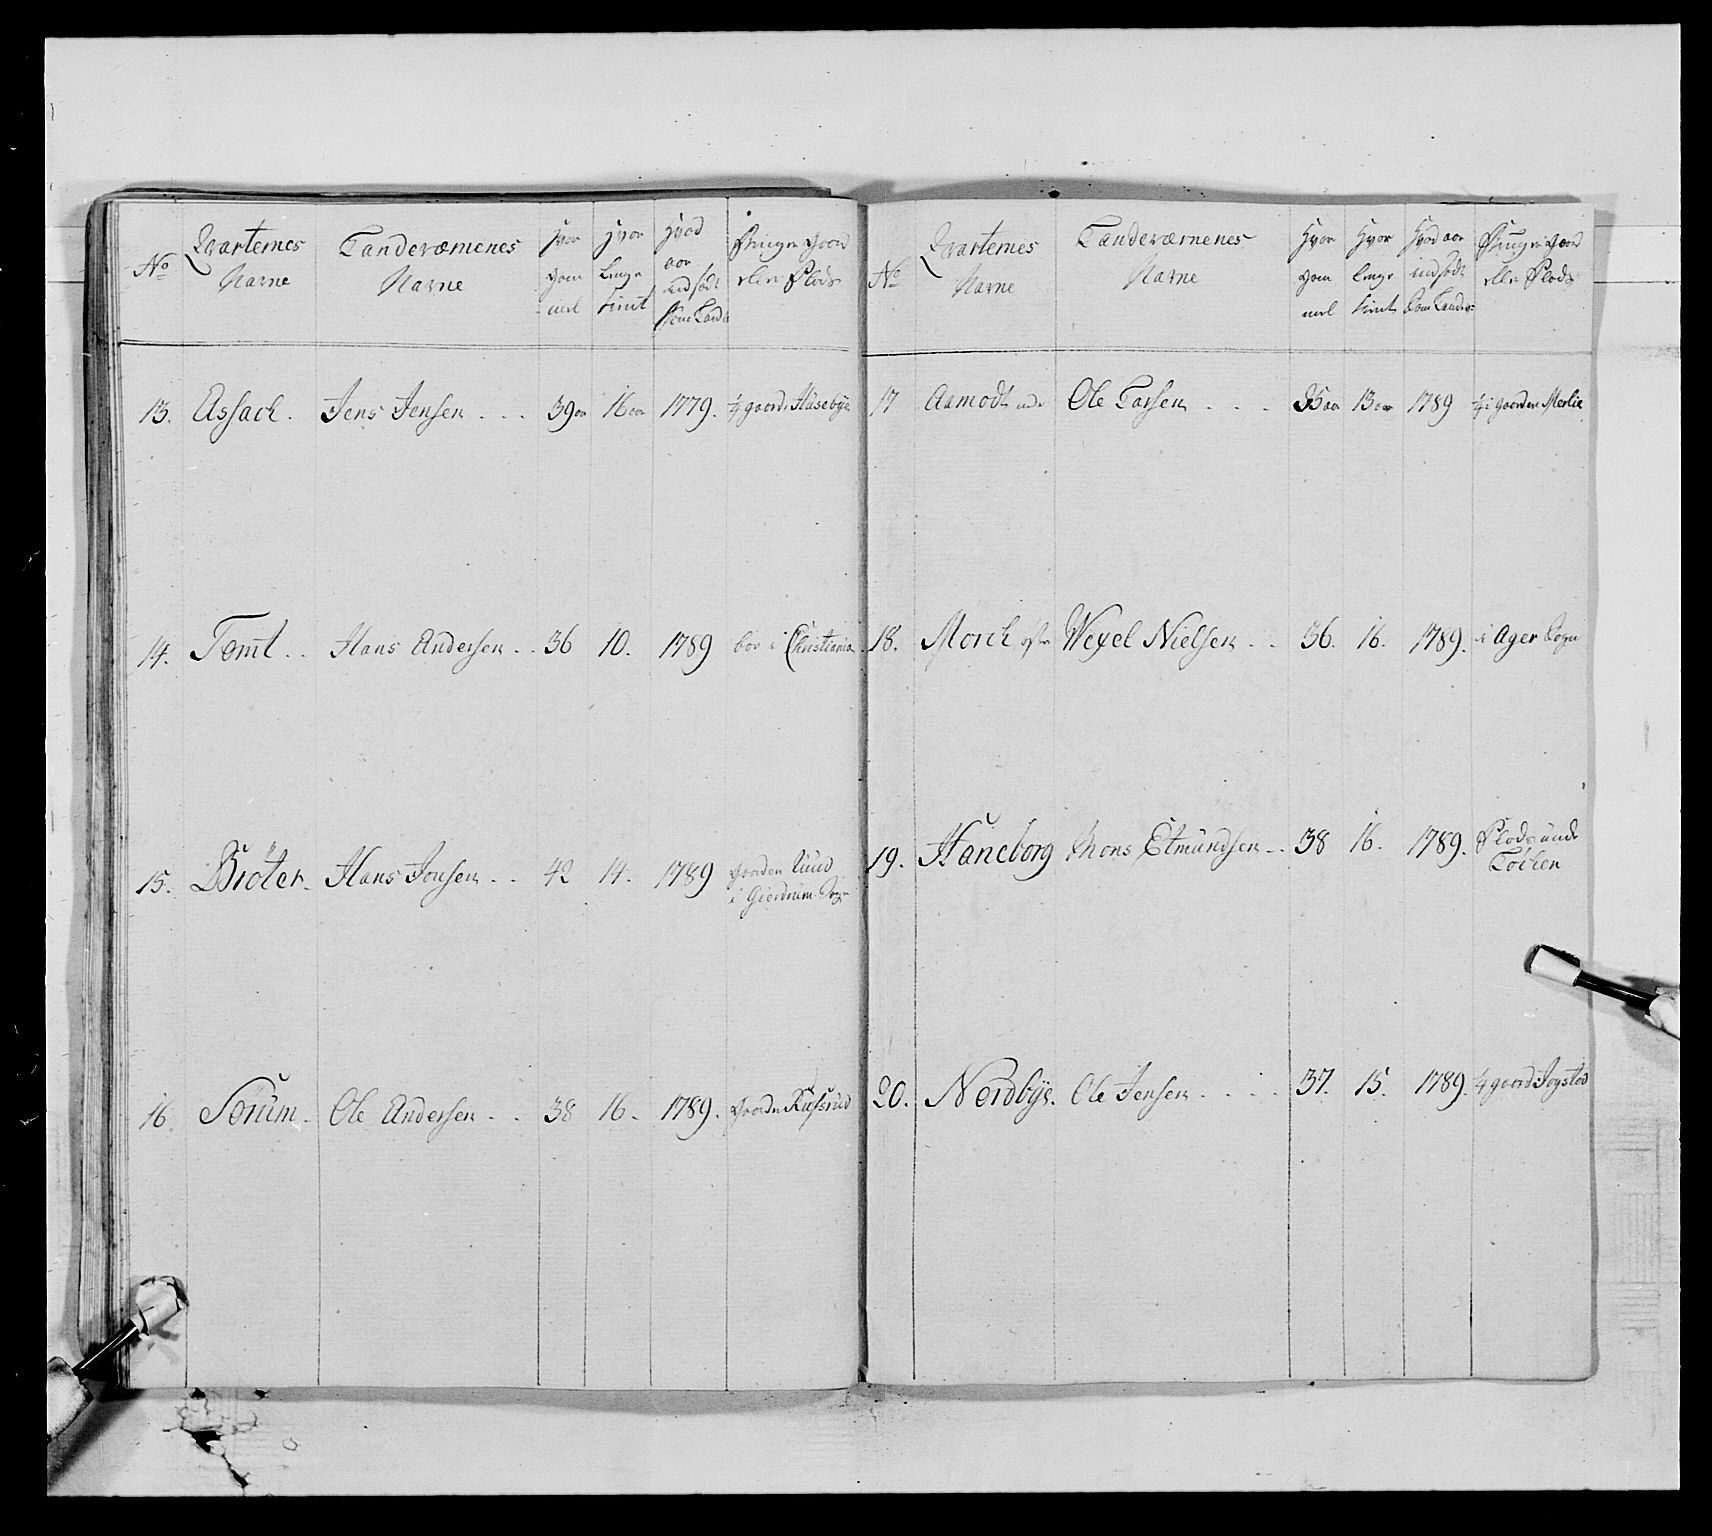 No
Qvarternes
Navne
Landeværnenes
Navne
Hvor
gam
mel
Hvor
lenge
tient
Hvad
aar
indsødt
som Land:
eller Plads
13. Assach. Jens Jensen . . . 39 aar 16 aar 1779. ½ gaard Huseby
14. Tomt . . Hans Andersen . . 36 10. 1789 boer i Christiania
15. Bröter. Hans Jonsen . . 42 14. 1789 Gaarden Lund
i Gierdrum Sogn
16. Sörum. Ole Andersen . . 38 16. 1789. Gaarden
No
Qvarternes
Navne
Landeværnenes
Navne
Hvor
gam
mel
Hvor
lenge
tient
Hvad aar
indsødt
som Landv:
eller Plads
17 Aamodt Ole Larsen . . . 35 aar 13 aar 1789 i gaarden
18. Morck Wexel Nielsen . . 36. 16. 1789. i Ager Sogn
19. Haneborg Mons Etmundsen . . 38 16. 1789. Plads under
Lochen
20. Nordbye. Ole Jensen . . . . 37. 15. 1789. gaard Jogstad